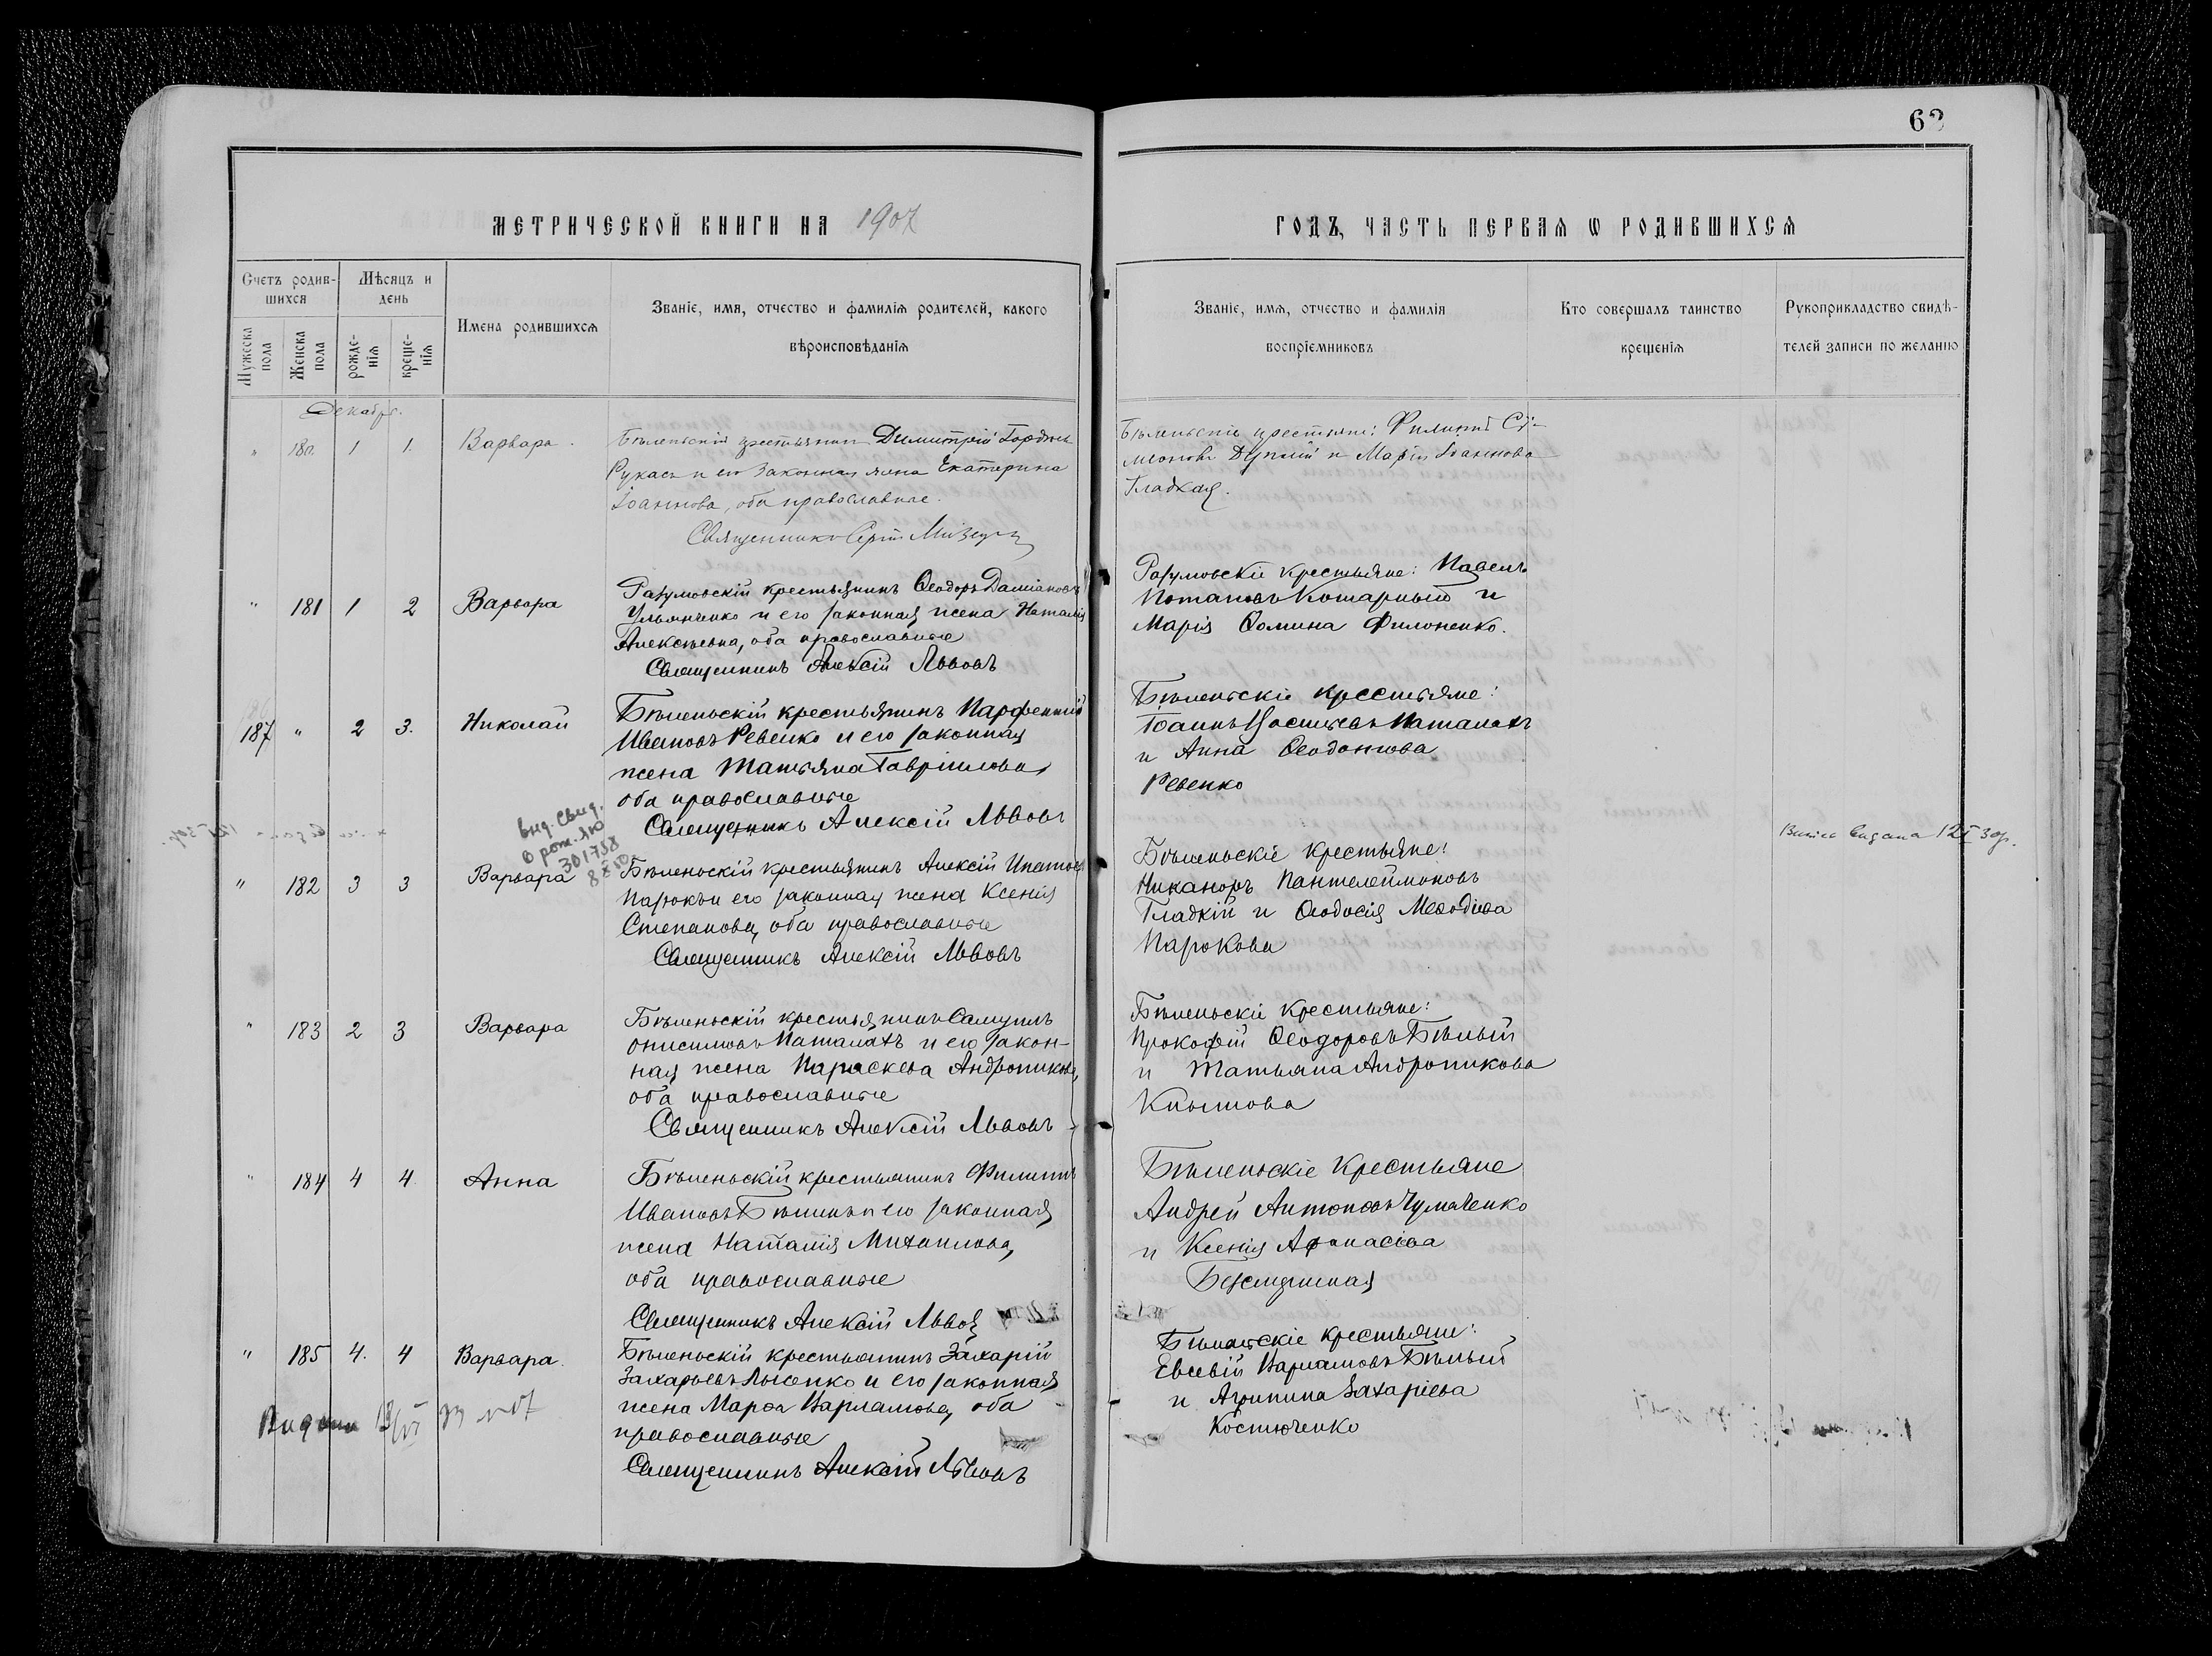 63
МЕТРИЧЕСКОЙ КНИГИ НА 1907
ГОДЪ, ЧАСТЬ ПЕРВАЯ Ѡ РОДИВШИХСЯ
Счетъ родив-
шихся
Мѣсяцъ и
день
Мужеска
пола
Женска
пола
рожде-
нія
креще-
нія
Имена родившихся
Званіе, имя, отчество и фамилія родителей, какого
вѣроисповѣданія
Званіе, имя, отчество и фамилія
воспріемниковъ
Кто совершалъ таинство
крещенія
Рукоприкладство свидѣ-
телей записи по желанію
Декабрь.
" 180. 1 1. Варвара.
Бѣленьскій крестьянин Димитрій
и его законная жена Екатерина
Іоаннова, оба православные.
Священникъ Сергій
Бѣленьскіе крестьяне: Филиппъ Сѵ-
меоновъ и Марія Іоаннова
Гладкая.
" 181 1 2 Варвара
Разумовскій крестьянинъ Ѳеодоръ Даміановъ
Ульянченко и его законная жена Наталія
Алексѣевна, оба православные
Священникъ Алексій Львовъ
Разумовскіе крестьяне: Павелъ
Потаповъ Комарный и
Марія Ѳомина Филоненко.
187 " 2 3. Николай
Бѣленьскій крестьянинъ Парфентій
Ивановъ Ревенко и его законная
жена Татьяна Гавріилова,
оба православные
Священникъ Алексій Львовъ
Бѣленьскіе крестьяне:
Іоаннъ Паталахъ
и Анна
Ревенко
выд. свид.
о рож.
301758
" 182 3 3 Варвара
Бѣленьскій крестьянинъ Алексій Ипатов
и его законная жена Ксенія
Степанова, оба православные
Священникъ Алексій Львовъ
Бѣленьскіе крестьяне:
Никаноръ Пантелеймоновъ
Гладкій и Ѳеодосія Меѳодіева
" 183 2 3 Варвара
Бѣленьскій крестьянинъ Самуилъ
Онисимовъ Паталахъ и его закон-
ная жена Параскева Андроникова,
оба православные
Священникъ Алексій Львовъ
Бѣленьскіе крестьяне:
Прокофій Ѳеодоровъ Бѣлый
и Татьяна Андроникова
" 184 4 4 Анна
Бѣленьскій крестьянинъ Филиппъ
Ивановъ и его законная
жена Наталія Михаилова,
оба православные
Священникъ Алексій Львов
Бѣленьскіе крестьяне
Андрей Антоновъ Чумаченко
и Ксенія Аѳанасіева
" 185 4. 4 Варвара.
Бѣленьскій крестьянинъ Захарій
Захарьевъ Лысенко и его законная
жена Марѳа Варламова, оба
православные
Священникъ Алексій Львовъ
Бѣленьскіе крестьяне:
Евсевій Варламовъ Бѣлый
и Агрипина Захаріева
Костюченко